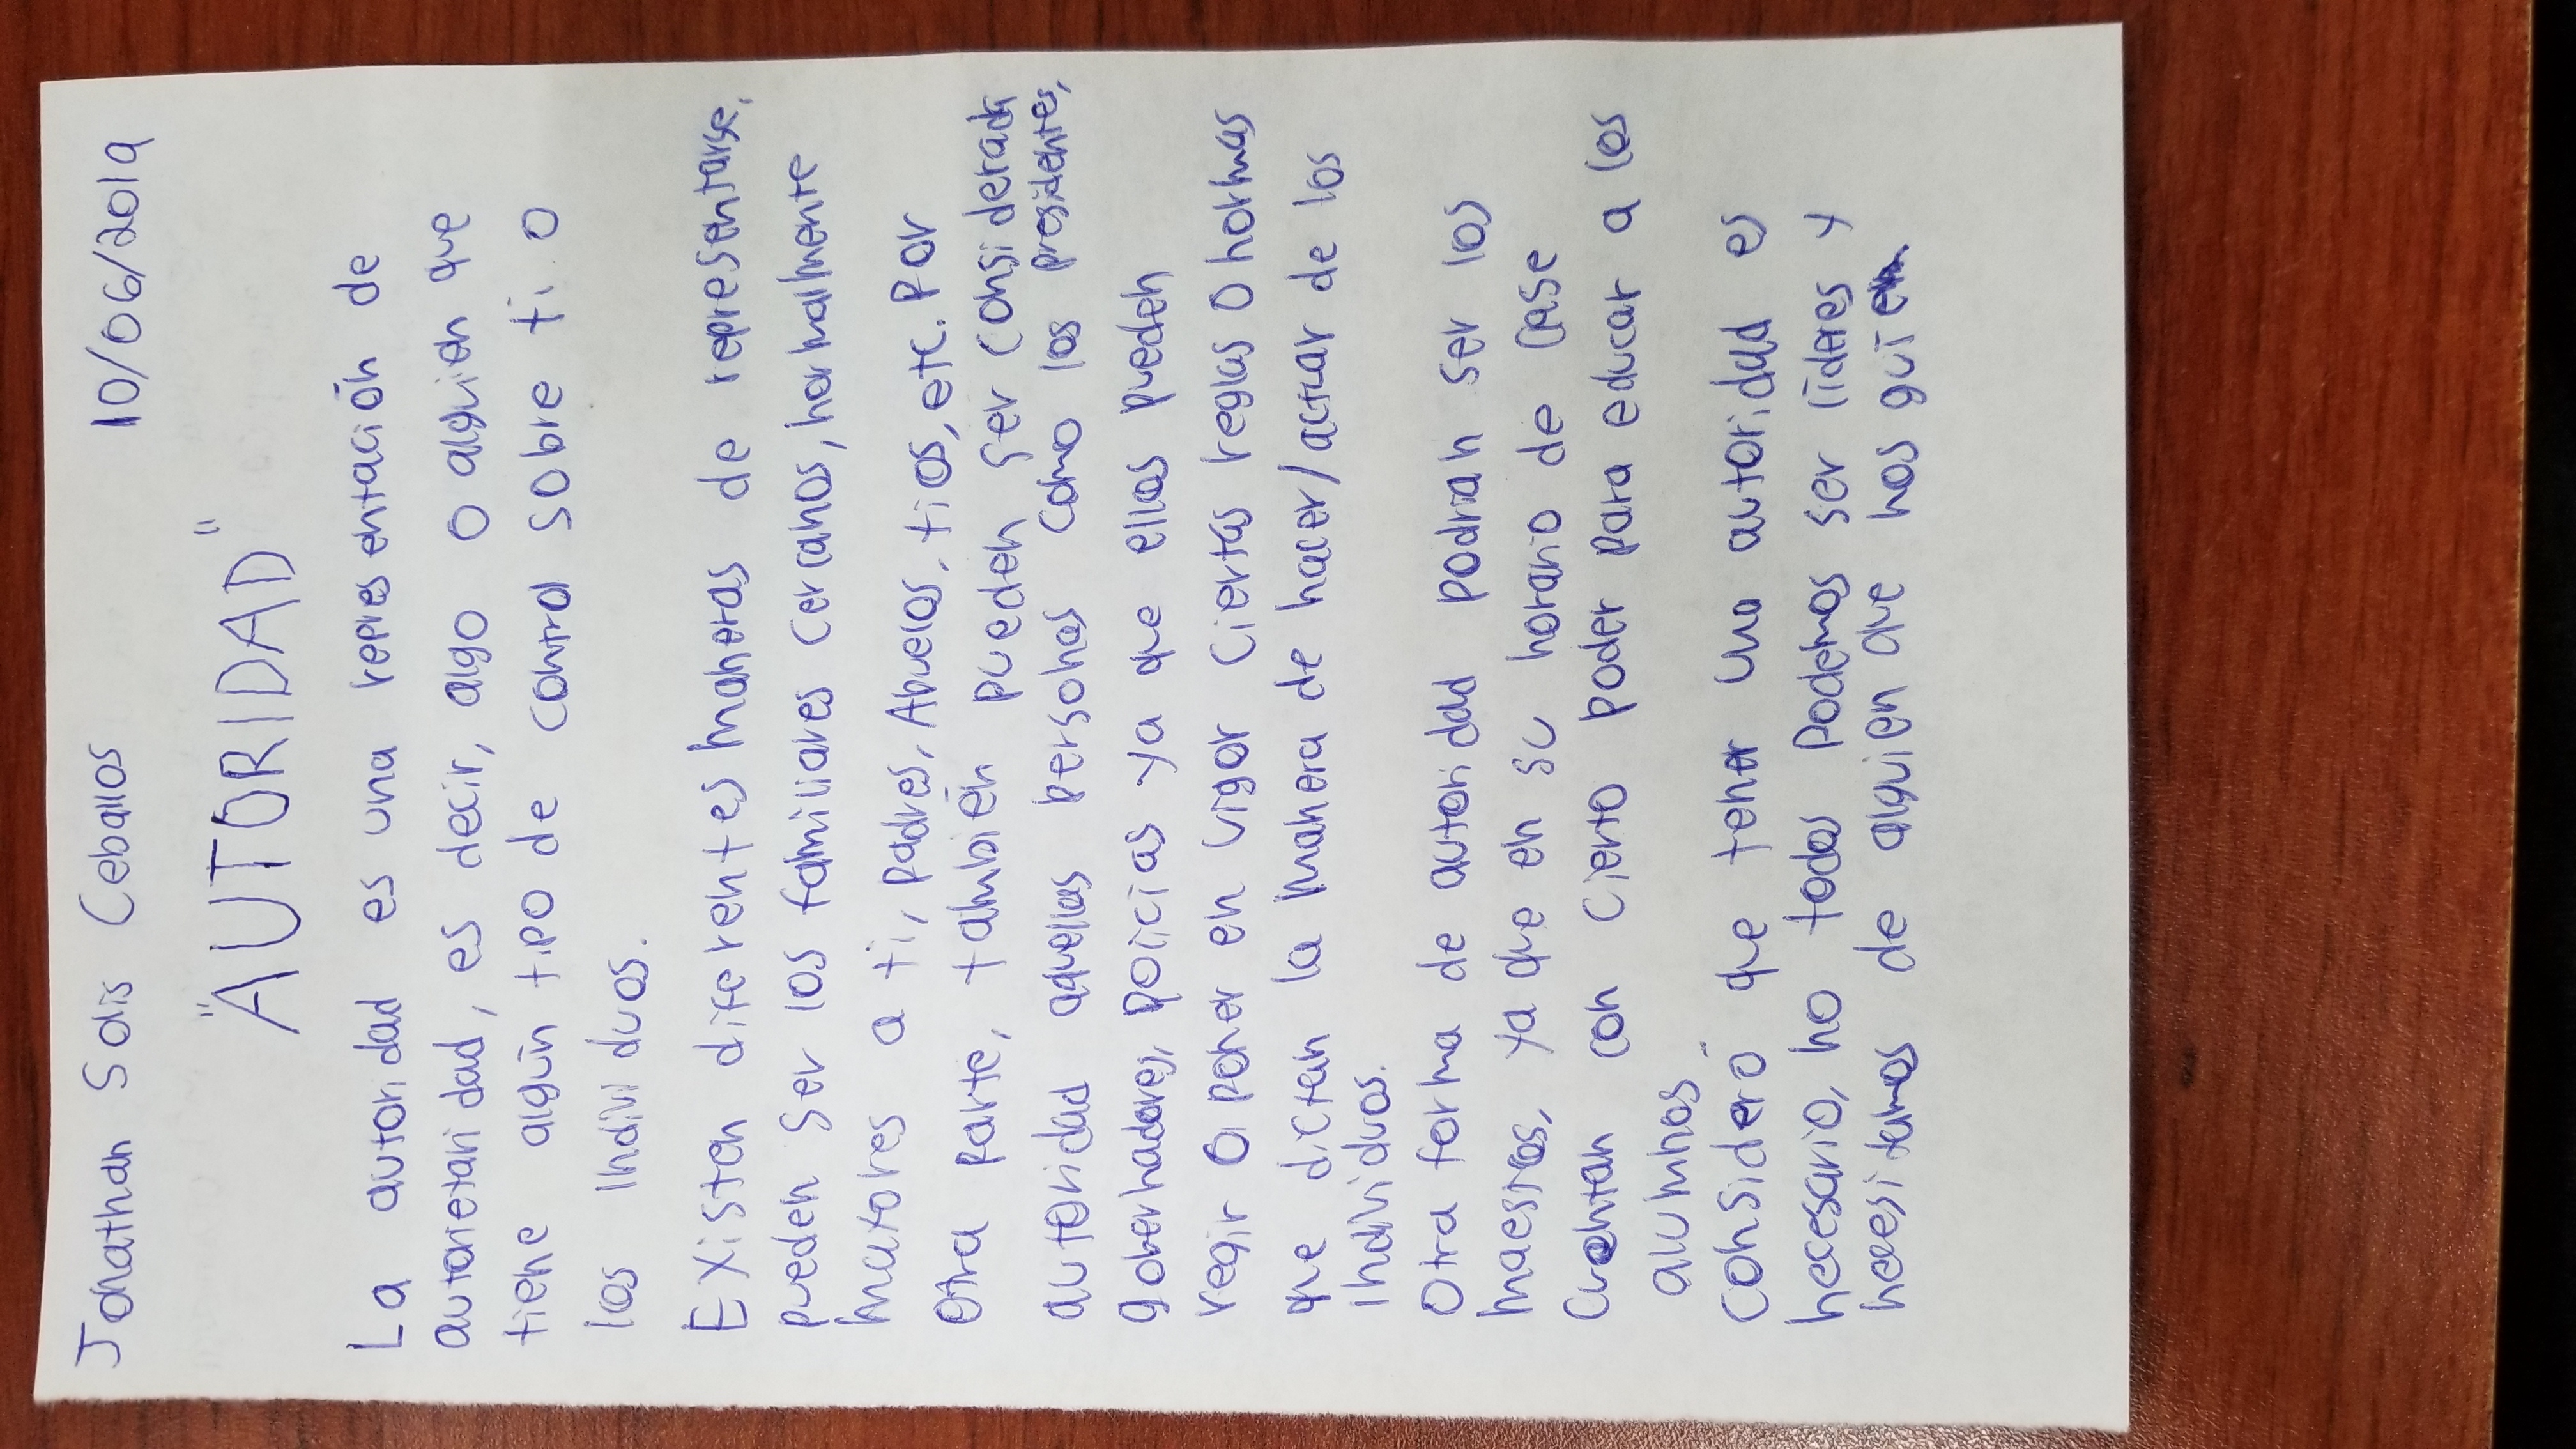 Jonathan Solis Ceballos 10/06/2019
"AUTORIDAD"
La autoridad es una representación de
autorietaridad, es decir, algo o alguien que
tiene algún tipo de control sobre ti o
los individuos.
Existen diferentes maneras de representarse,
pueden ser los familiares cercanos, normalmente
mayores a ti, padres, Abuelos, tios, etc. Por
otra parte, también pueden ser considerada
autoridad aquellas personas como los presidentes,
gobernadores, policias ya que ellos pueden
regir o poner en vigor ciertas reglas o normas
que dictan la manera de hacer/actuar de los
individuos.
Otra forma de autoridad podrian ser los
maestros, ya que en su horario de clase
cuentan con cierto poder para educar a los
alumnos.
consideró que tener una autoridad es
necesario, no todos podemos ser líderes y
necesitamos de alguien que nos guíe